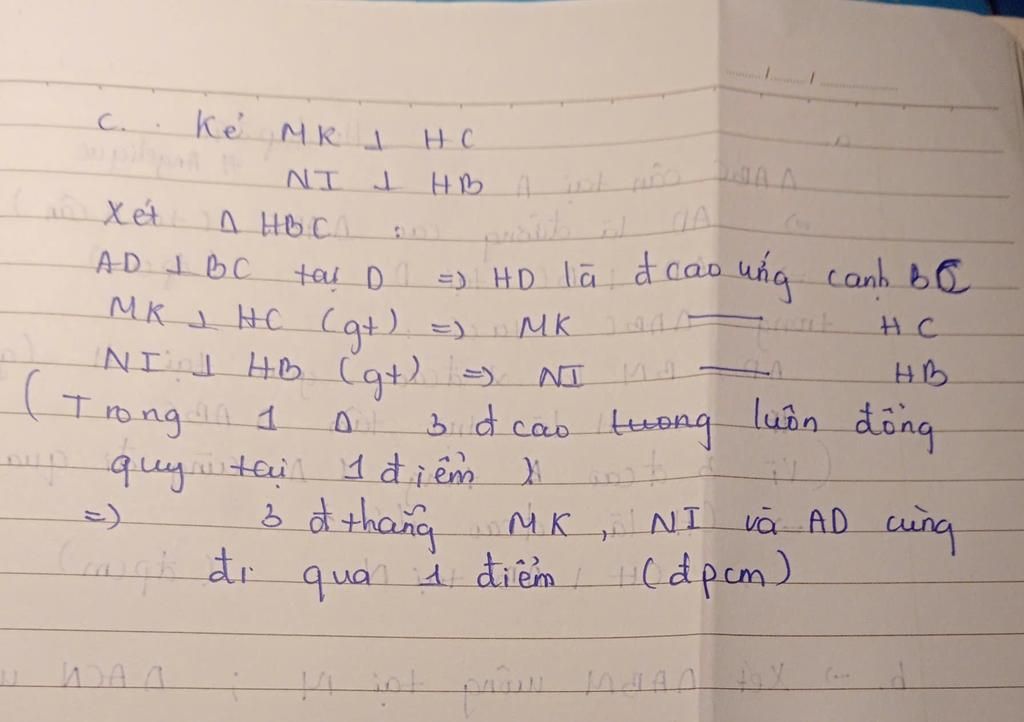 c. . Kẻ MK ⊥ HC
NI ⊥ HB
Xét Δ HBC :
AD ⊥ BC tại D => HD là đcao ứng cạnh BC
MK ⊥ HC (gt) => MK —— HC
NI ⊥ HB (gt) => NI —— HB
(Trong 1 Δ 3 đcao tương luôn đồng
quy tại 1 điểm )
=> 3 đthẳng MK, NI và AD cùng
đi qua 1 điểm (đpcm)